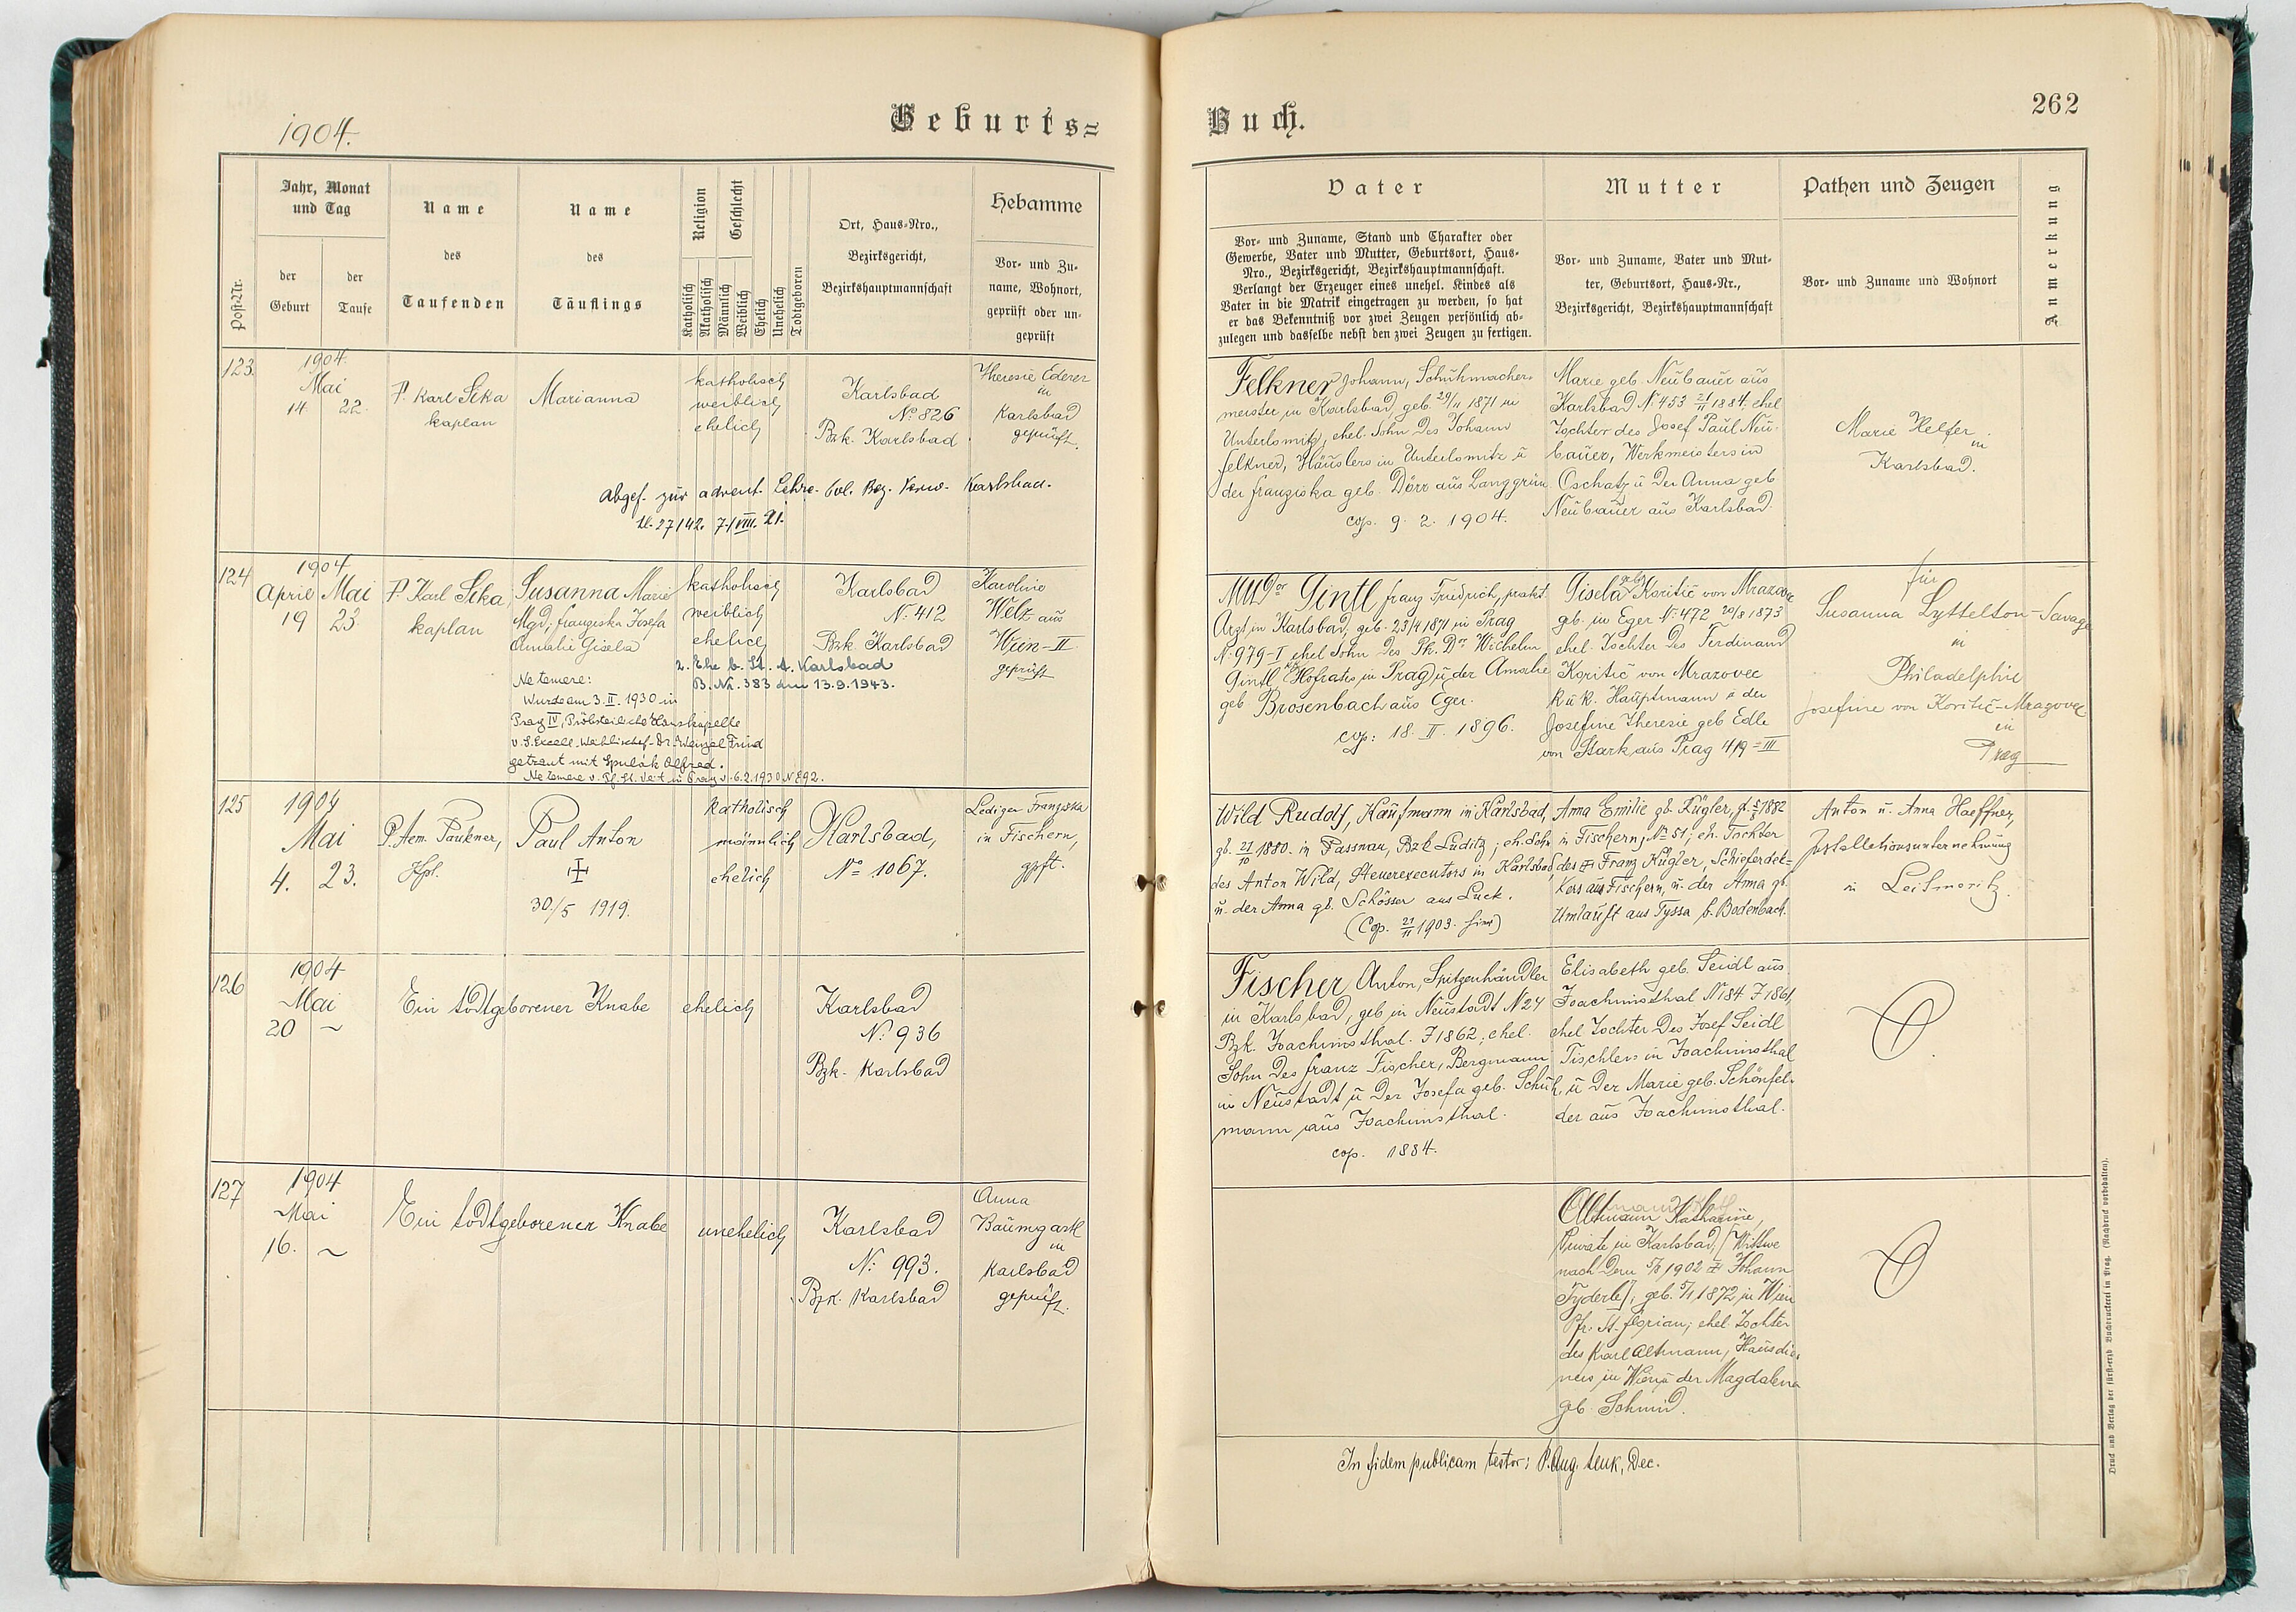 1904.
Geburts=
Buch.
262
Jahr, Monat
und Tag
der
Geburt
der
Taufe
Post-Nr.
Name
des
Taufenden
Name
des
Täuflings
Religion
Geschlecht
Katholisch
Akatholisch
Männlich
Weiblich
Ehelich
Unehelich
Todtgeboren
Ort, Haus-Nro.,
Bezirksgericht,
Bezirkshauptmannschaft
Hebamme
Vor- und Zu-
name, Wohnort,
geprüft oder un-
geprüft
Vater
Vor- und Zuname, Stand und Charakter oder
Gewerbe, Vater und Mutter, Geburtsort, Haus-
Nro., Bezirksgericht, Bezirkshauptmannschaft.
Verlangt der Erzeuger eines unehel. Kindes als
Vater in die Matrik eingetragen zu werden, so hat
er das Bekenntniß vor zwei Zeugen persönlich ab-
zulegen und dasselbe nebst den zwei Zeugen zu fertigen.
Mutter
Vor- und Zuname, Vater und Mut-
ter, Geburtsort, Haus-Nr.,
Bezirksgericht, Bezirkshauptmannschaft
Pathen und Zeugen
Vor- und Zuname und Wohnort
Anmerkung
123.
1904.
Mai
14. 22.
P. Karl Sika
kaplan
Marianna
katholisch
weiblich
ehelich
Karlsbad
No. 826
Bzk. Karlsbad
Theresie Ederer
in
Karlsbad
geprüft.
Abgef. zur advent. Lehre. Pol. Bez. Verw. Karlsbad.
Zl. 27142. 7./VIII. 21.
Felkner Johann, Schuhmacher-
meister in Karlsbad, geb. 29/11 1871 in
Unterlomitz, ehel. Sohn des Johann
Felkner, Häuslers in Unterlomitz u
der Franziska geb. Dörr aus Langgrün.
cop. 9. 2. 1904.
Marie geb. Neubauer aus
Karlsbad No 453 1884. ehel
Tochter des Josef Paul Neu-
bauer, Werkmeisters in
Oschatz u der Anna geb
Neubauer aus Karlsbad.
Marie Helfer
in
Karlsbad.
124
1904
April Mai
19 23
P. Karl Sika,
kaplan
Susanna Marie
Mgd, Franziska Josefa
Amalie Gisela
katholisch
weiblich
ehelich
Karlsbad
No. 412
Bzk. Karlsbad
Karoline
Welz aus
Wien-II
geprüft
2. Ehe b. St. A. Karlsbad
B. Nr. 383 am 13.9.1943.
Ne temere:
Wurde am 3. II. 1930 in
Prag IV, Pröbsteiliche Hauskapelle
v. S. Excell. Weihbischof Dr. Wenzel Frind
getraut mit Spulak Alfred.
Ne temere v. Pf. St. Veit in Prag v. 6.2.1930 N 892.
MUDor Gintl Franz Friedrich, prakt.
Arzt in Karlsbad, geb. 23/4 1871 in Prag
No. 979-I ehel Sohn des Ph. Dr Wilhelm
Gintl kk Hofrates in Prag u der Amalie
geb Brosenbach aus Eger.
cop: 18. II. 1896.
Gisela geb Koritic von Mrazovec
gb. in Eger No. 472 20/8 1873
ehel. Tochter des Ferdinand
Koritic von Mrazovec
k u k. Hauptmann u der
Josefine Theresie geb Edle
von Stark aus Prag 419=III
für
Susanna Lyttelton-Savage
in
Philadelphie
Josefine von Koritic-Mrazovec
in
Prag
125
1904
Mai
4. 23.
P. Aem. Paukner,
Hpl.
Paul Anton
30/5 1919.
katholisch
männlich
ehelich
Karlsbad,
No 1067.
Lediger Franziska
in Fischern,
gpft.
Wild Rudolf, Kaufmann in Karlsbad,
gb. 21/10 1880. in Passnau, Bzk Luditz; eh. Sohn
des Anton Wild, Steuerexecutors in Karlsbad
u. der Anna gb. Schösser aus Luck.
(Cop. 21/11 1903. hier)
Anna Emilie gb. Kügler, 1882
in Fischern, No 51; eh. Tochter
des Franz Kügler, Schieferdek-
kers aus Fischern, u. der Anna gb.
Umlauft aus Tyssa b. Bodenbach.
Anton u. Anna Haeffner,
Installationsunternehmung
in Leitmeritz.
126
1904
Mai
20 ~
Ein todtgeborener Knabe
ehelich
Karlsbad
No. 936
Bzk. Karlsbad
Fischer Anton, Spitzenhändler
in Karlsbad, geb in Neustadt N 24
Bzk. Joachimsthal. J 1862, ehel.
Sohn des Franz Fischer, Bergmann
in Neustadt u der Josefa geb. Schuh
mann aus Joachimsthal.
cop. 1884.
Elisabeth geb. Seidl aus
Joachimsthal N 184 J 1861,
ehel Tochter des Josef Seidl
Tischlers in Joachimsthal
u der Marie geb. Schönfel-
der aus Joachimsthal.
127
1904
Mai
16. ~
Ein todtgeborener Knabe
unehelich
Karlsbad
No: 993.
Bzk. Karlsbad
Anna
Baumgartl
in
Karlsbad
geprüft.
Altmann Katharine,
Private in Karlsbad, [Wittwe
nach dem 1902 Johann
Fyderle], geb. 5/1 1872 in Wien
Pfr. St. Florian; ehel. Tochter
des Karl Altmann, Hausdie-
ners in Wien u der Magdalena
geb. Schmid.
In fidem publicam testor: P. Aug. Lenk, Dec.
Druck und Verlag der fürst-erzb Buchdruckerei in Prag. (Nachdruck vorbehalten).